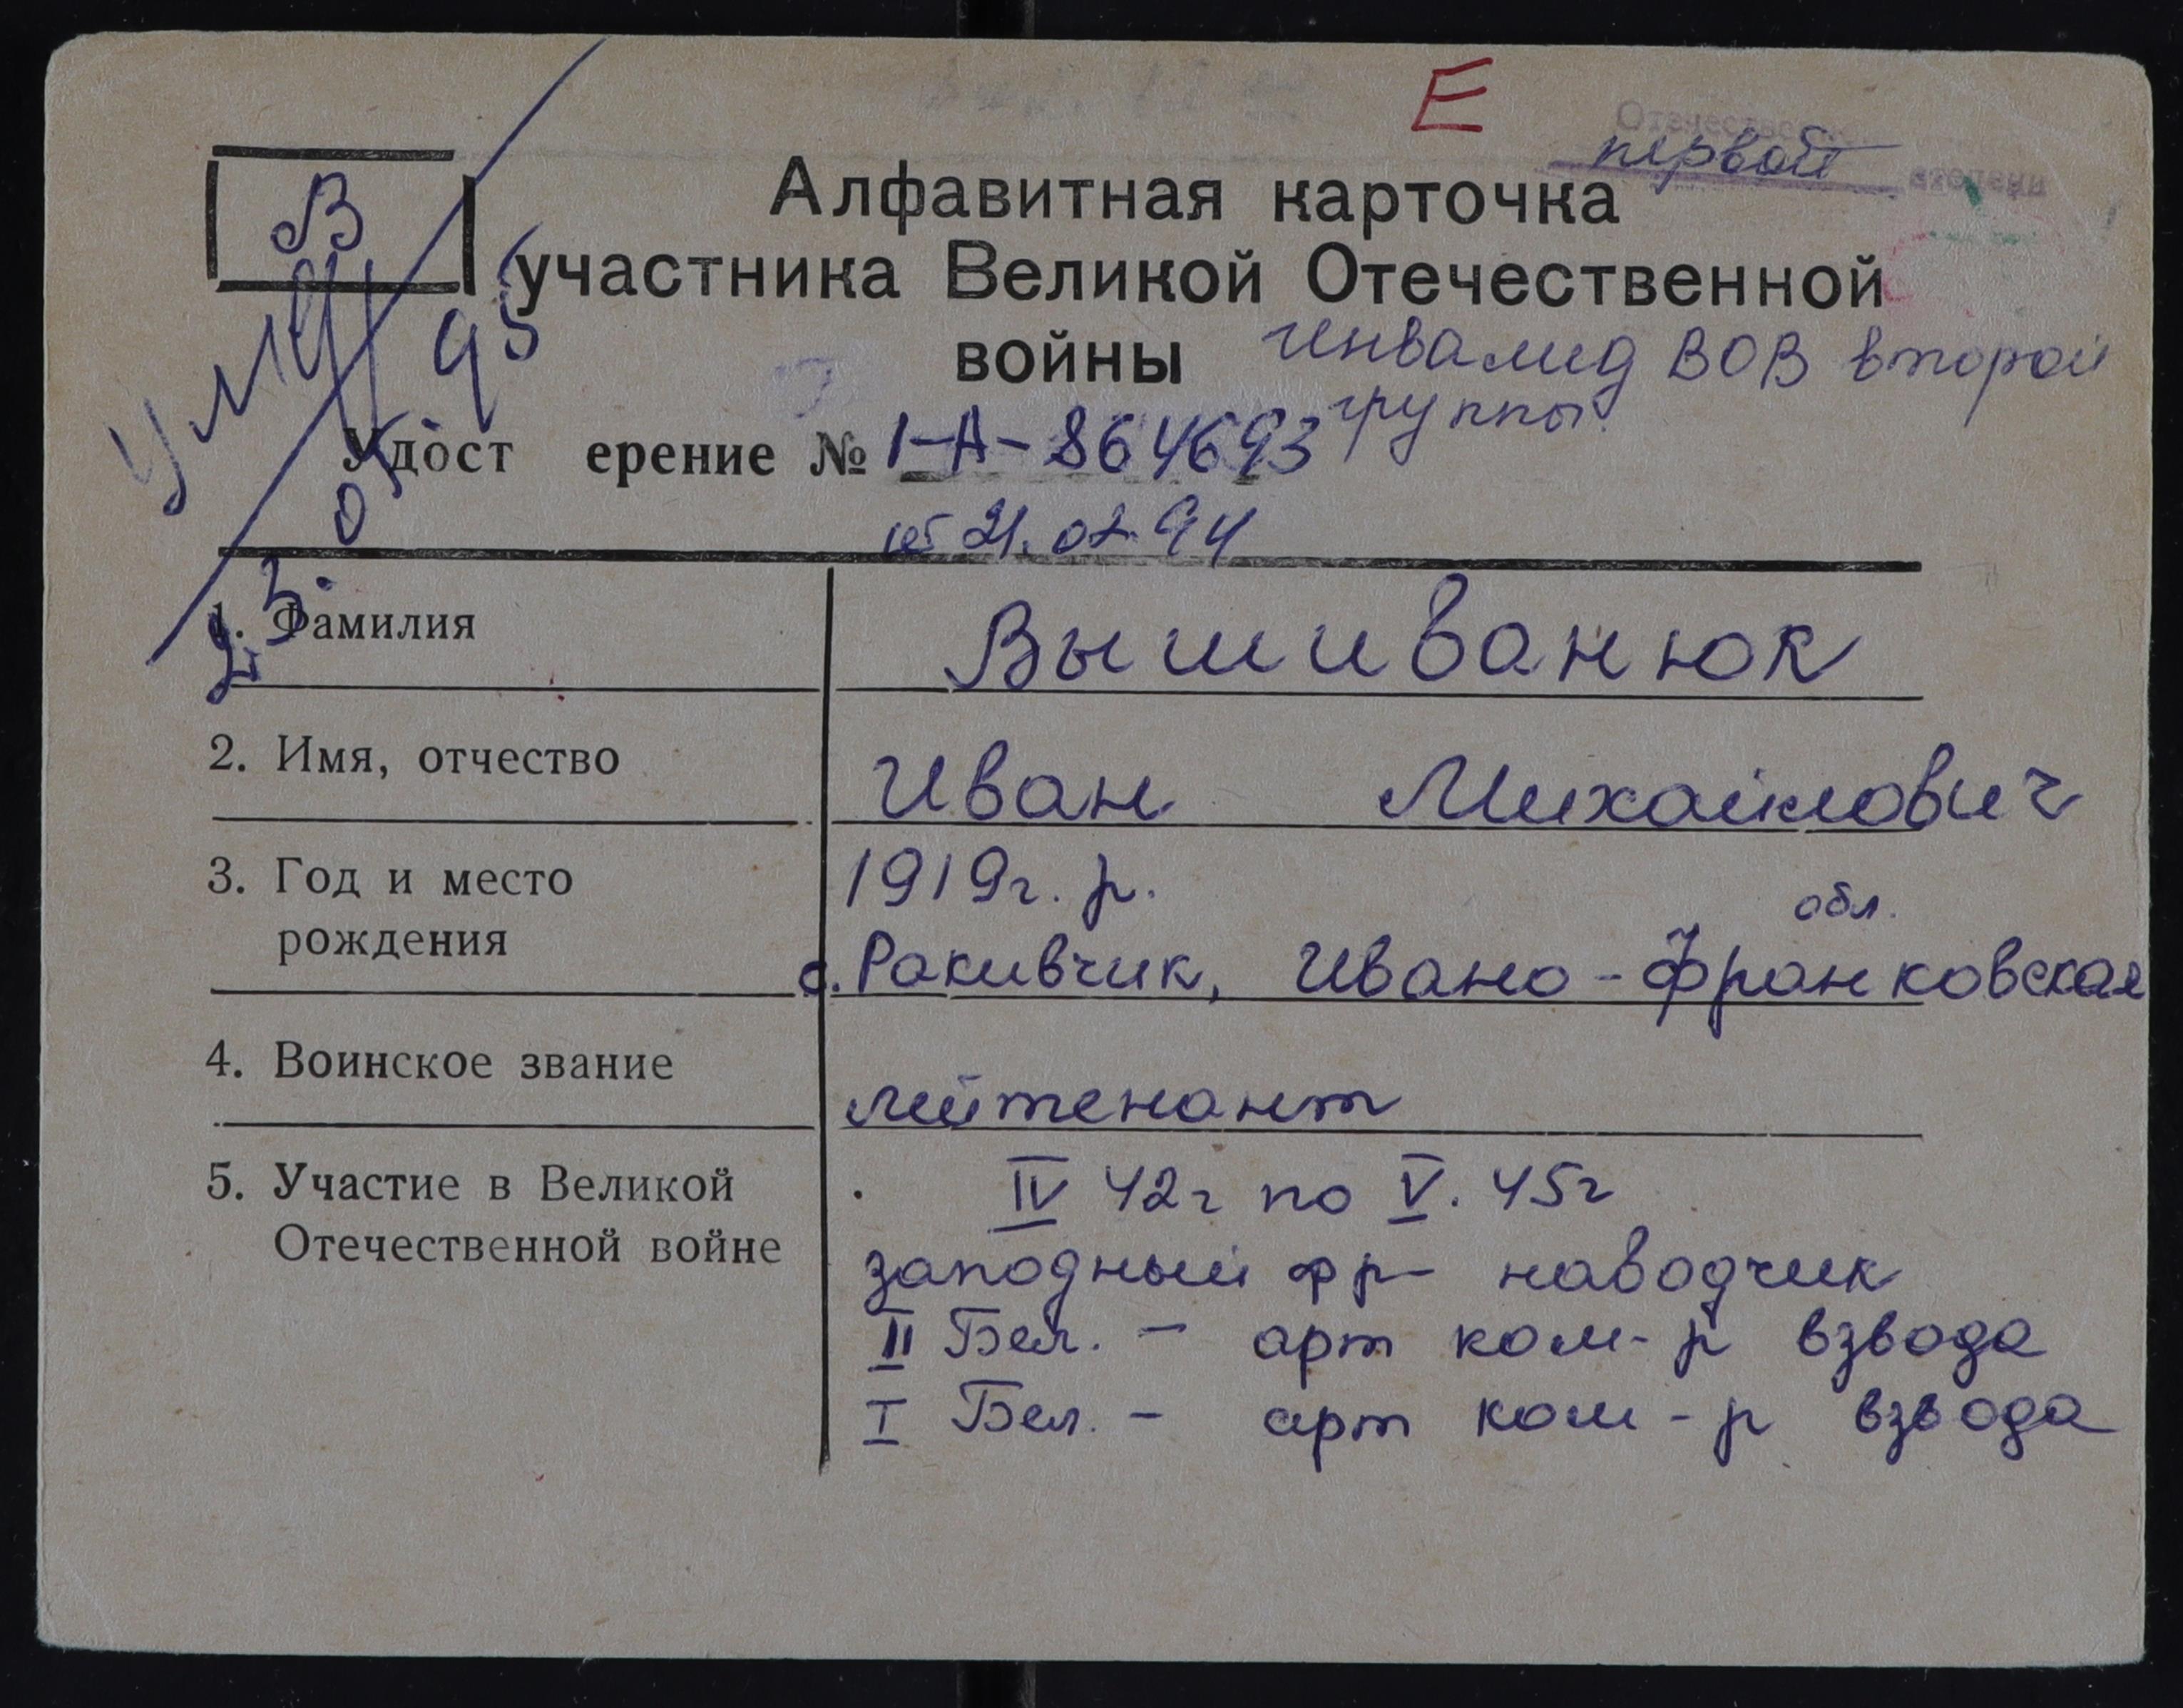 Е
первой
Алфавитная карточка
В
участника Великой Отечественной
войны инвалид ВОВ второй
группы
95
Удост ерение № 1-А-864693
от 21.02.94
1. Фамилия Вышиванюк
2. Имя, отчество Иван Михайлович
3. Год и место 1919г. р.
обл.
рождения с. Ракивчик, Ивано-Франковская
4. Воинское звание лейтенант
5. Участие в Великой IV 42г по V. 45г
Отечественной войне западный фр- наводчик
II Бел. - арт ком-р взвода
I Бел. - арт ком-р взвода